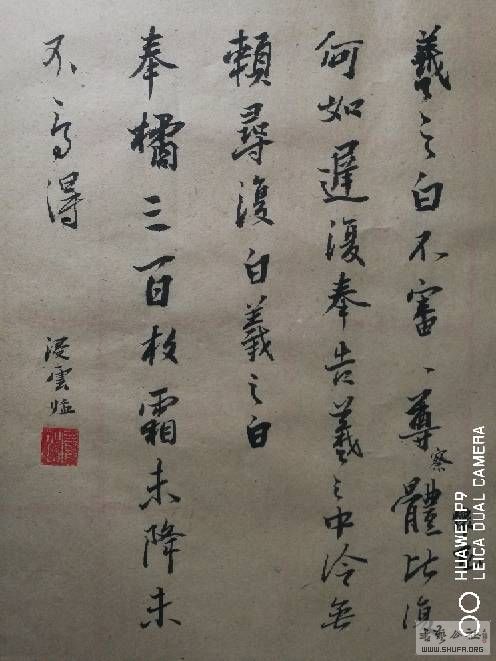 羲之白不審尊體比復
察
何如遲復奉告羲之中冷無
賴尋復白羲之白
奉橘三百枚霜未降未
不可多得
雲临
HUAWEI P9
LEICA DUAL CAMERA
书艺公社
WWW.SHUFA.ORG